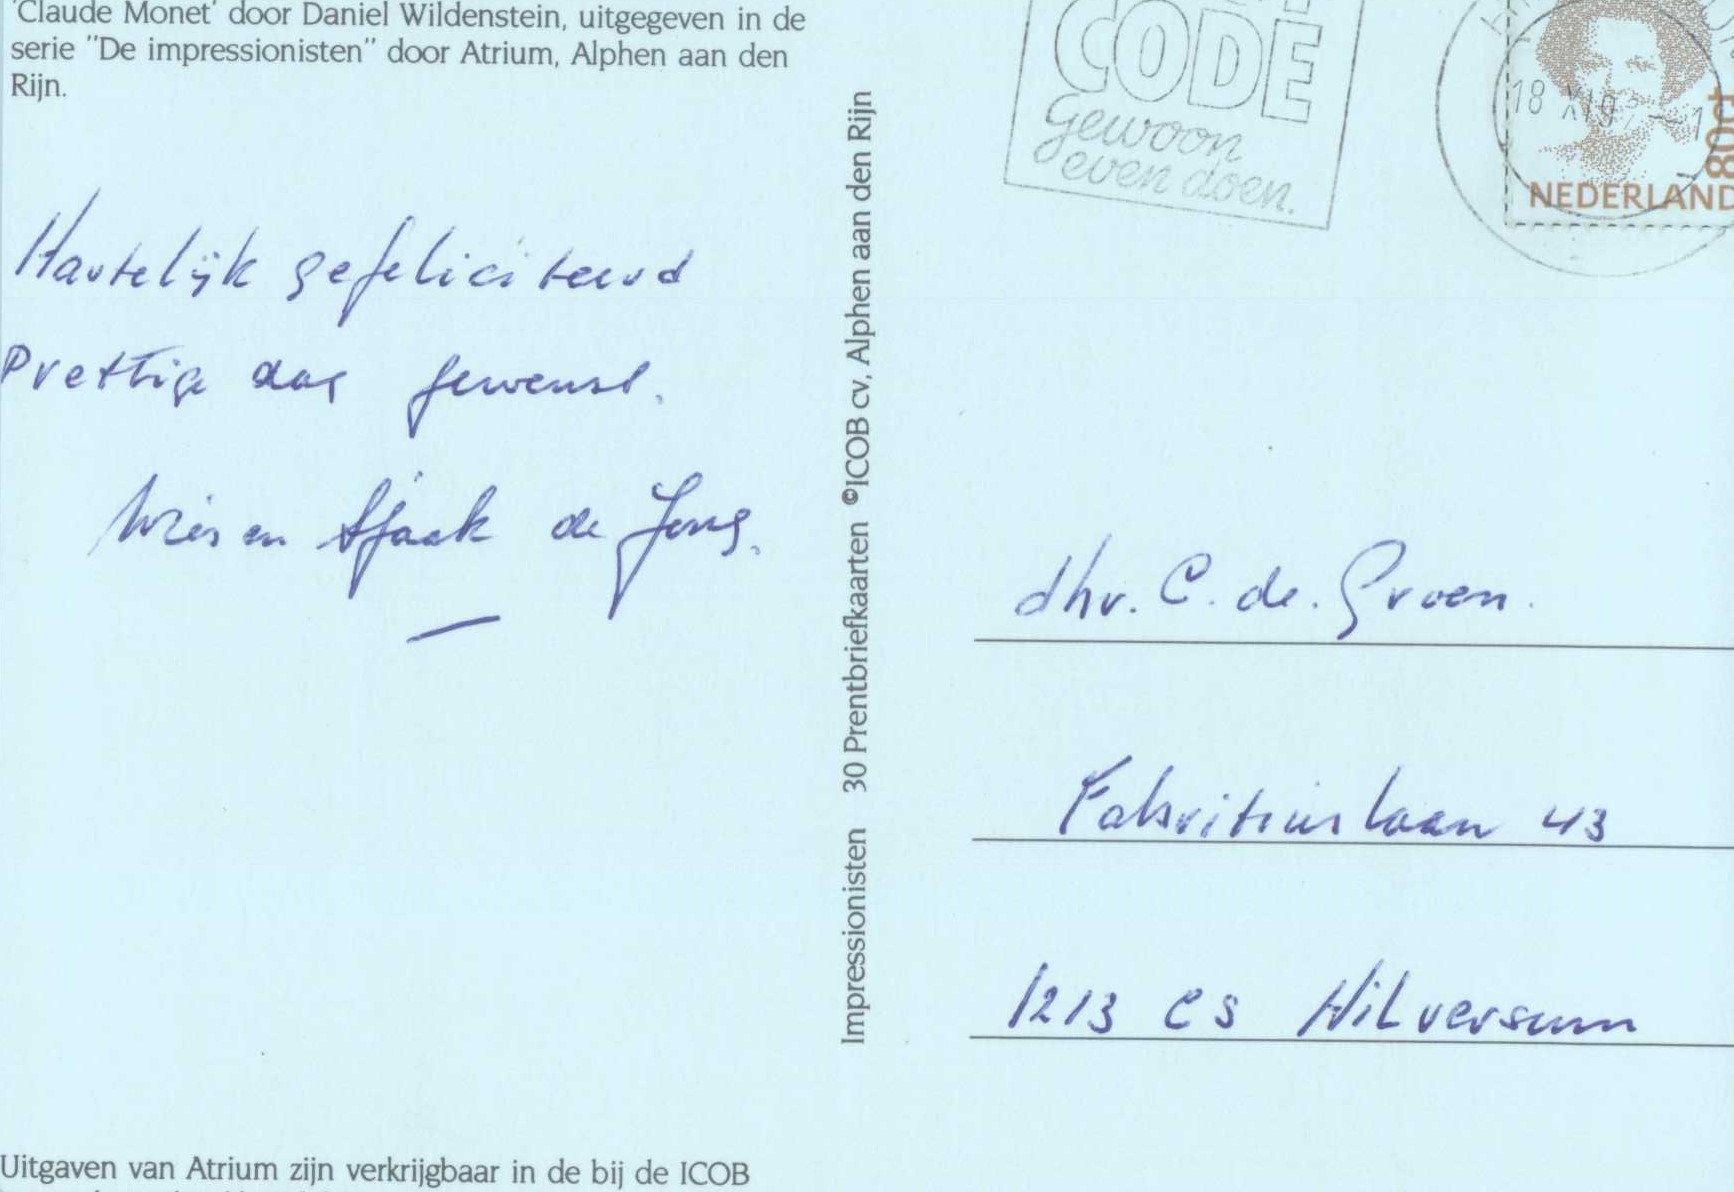 'Claude Monet' door Daniel Wildenstein, uitgegeven in de
serie "De impressionisten" door Atrium, Alphen aan den
Rijn.
Hartelijk gefeliciteerd
Prettige dag gewenst.
Wies en Sjaak de Jong.
Uitgaven van Atrium zijn verkrijgbaar in de bij de ICOB
Impressionisten 30 Prentbriefkaarten ©ICOB cv, Alphen aan den Rijn
CODE
gewoon
even doen.
18 XI 9
80ct
NEDERLAND
dhr. C. de. Groen.
Fabritiuslaan 43
1213 CS Hilversum